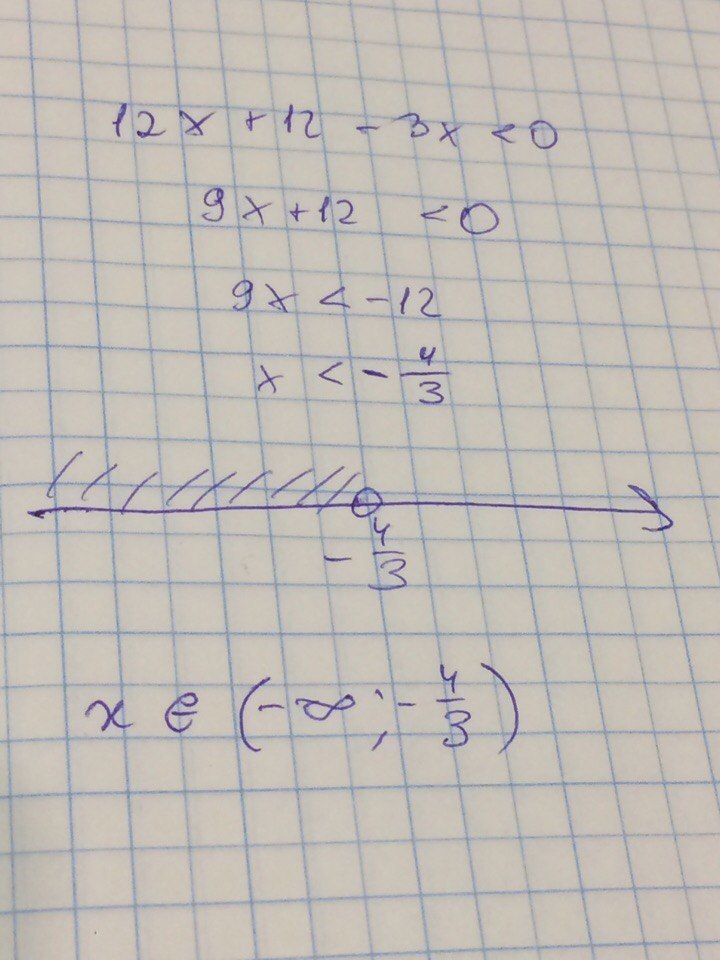 12x + 12 - 3x < 0
9x + 12 < 0
9x < -12
x < - 4/3
- 4/3
x ∈ (-∞; - 4/3)